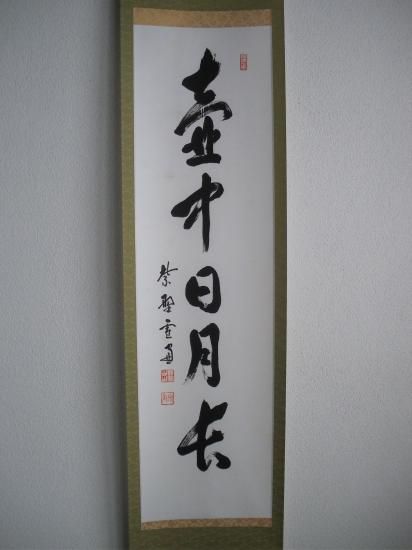 壺中日月长
紫野